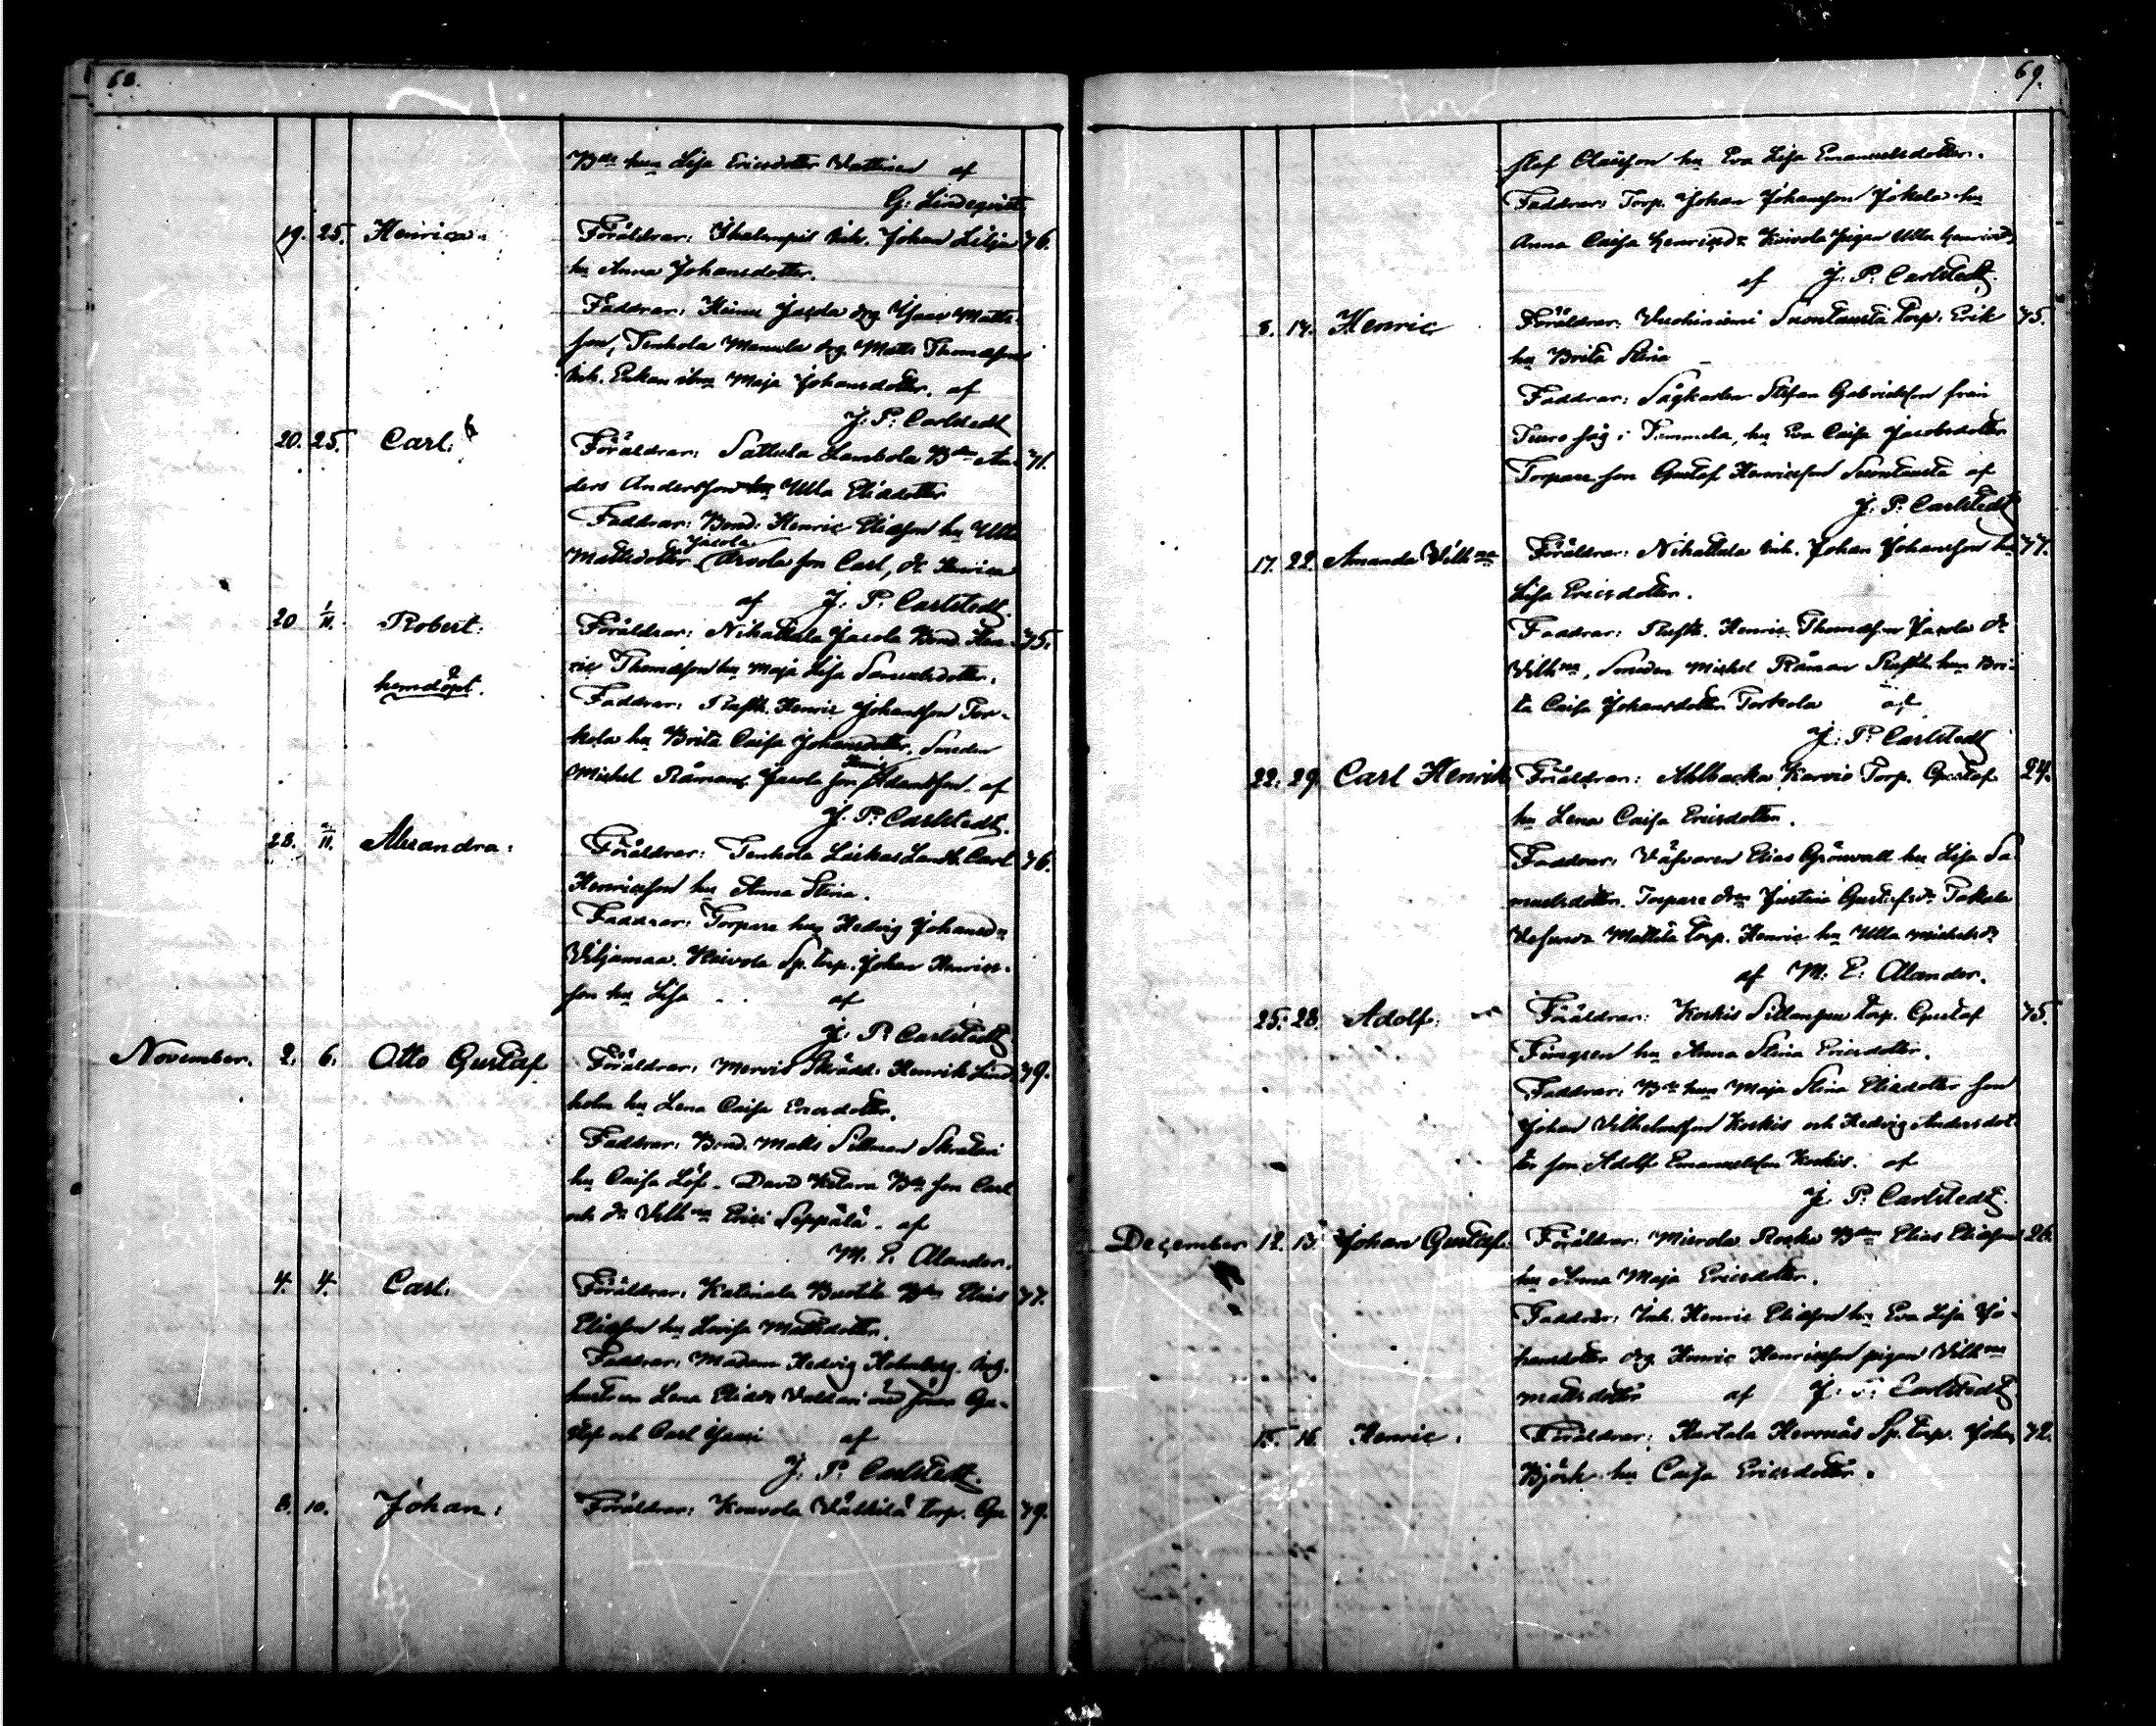 68.
Bde hun Lisa Ericsdotter Vattinen af
G: Lindeqvist
19. 25. Henrica. Föräldrar: Inh. Johan Lilja 76.
hu Anna Johansdotter.
Faddrar: Jacola drg. Isaac Matts-
son, Tenhola Mannila drg. Matts Thomasson
Inh. Enkan Maja Johansdotter. af
J: P: Carlstedt
20. 25. Carl: Föräldrar: Sattula Lambola Bdn An- 71.
ders Andersson hu Ulla Eliedotter
Faddrar: Bond. Henric Eliasson hu Ulla
Jacola
Mattsdotter Arvola son Carl, dr Henrica
af J: P: Carlstedt.
20 1/11. Robert: Föräldrar: Nihattula Jacola Bond. Hen- 75.
ric Thomasson hu Maja Lisa Samuelsdotter.
hemdöpt.
Faddrar: Rusth. Henric Johansson Tor-
kola hu Brita Caisa Johansdotter, Smeden
Henric
Michel Råman, Jacola son Adamsson. af
J: P: Carlstedt.
28. 2/11. Alexandra: Föräldrar: Tenhola Carl 76.
Henricsson hu Anna Stina.
Faddrar: Torpare hun Hedvig Johansdr
Viljamaa. Koivola Sp. torp. Johan Henrics-
son hu Lisa af
J: P: Carlstedt
November. 2. 6. Otto Gustaf Föräldrar: Mervis Skrädd. Henrik Lind- 79.
holm hu Lena Caisa Ericsdotter.
Faddrar: Bond. Matts Sillman
hu Caisa Löf. David Bde son Carl
och dr Vilhna Erici Seppälä. af
M. E. Alander.
4. 4. Carl: Föräldrar: Katinala Bustila Bdn Elias 77.
Eliasson hu Lovisa Mattsdotter.
Faddrar: Madam Hedvig Holmberg.
hustrun Lena Eliaedr Gu-
staf och Carl af
J: P: Carlstedt.
8. 10. Johan: Föräldrar: Koivola Välkilä torp. Gu 79.
69.
staf Claësson hu Eva Lisa Emanuelsdotter.
Faddrar: Torp. Johan Johansson Jokela hu
Anna Caisa Henricsdr Koivola pigan Ulla Henricsdr
af J: P: Carlstedt.
8. 14. Henric Föräldrar: Vuohiniemi Suontausta torp. Erik 75.
hu Brita Stina
Faddrar: Sågkarlen Stefan Gabrielsson från
Turo såg i Tammela, hu Eva Caisa Jacobsdotter
Torpare son Gustaf Henricsson Suontausta af
J: P: Carlstedt
17. 22. Amanda Vilhna Föräldrar: Nihattula Inh. Johan Johansson hu 77.
Lisa Ericsdotter.
Faddrar: Rusth. Henric Thomasson Jacola dr
Vilhna, Smeden Michel Råman Rusth. hun Bri-
ta Caisa Johansdotter Torkola af
J: P: Carlstedt
22. 29. Carl Henrik Föräldrar: Ahlbacka Torp. Gustaf 24.
hu Lena Caisa Ericsdotter.
Faddrar: Väfvaren Elias Grönvall hu Lisa Sa-
muelsdotter. Torpare drn Justina Gustafsdr Pakola
Vesunda Mattila torp. Henric hu Ulla Michelsdr
af M: E: Alander.
25. 28. Adolf: Föräldrar: Koskis Sillanpää torp. Gustaf 75.
hu Anna Stina Ericsdotter.
Faddrar: Bde hun Maja Stina Eliedotter son
Johan Vilhelmsson Koskis och Hedvig Andersdot-
ter son Adolf Emanuelsson Koskis. af
J: P: Carlstedt.
December 12. 13. Johan Gustaf. Föräldrar: Mierola Bdn Elias Eliasson 26.
hu Anna Maja Ericsdotter.
Faddrar: Inh. Henric Eliasson hu Eva Lisa Jo-
hansdotter drg. Henric Henricsson pigan Vilhna
Mattsdotter af J: P: Carlstedt.
15. 16. Henric. Föräldrar: Hurtala Herrnäs Sp. torp. Johan 72.
Björk hu Caisa Ericsdotter.